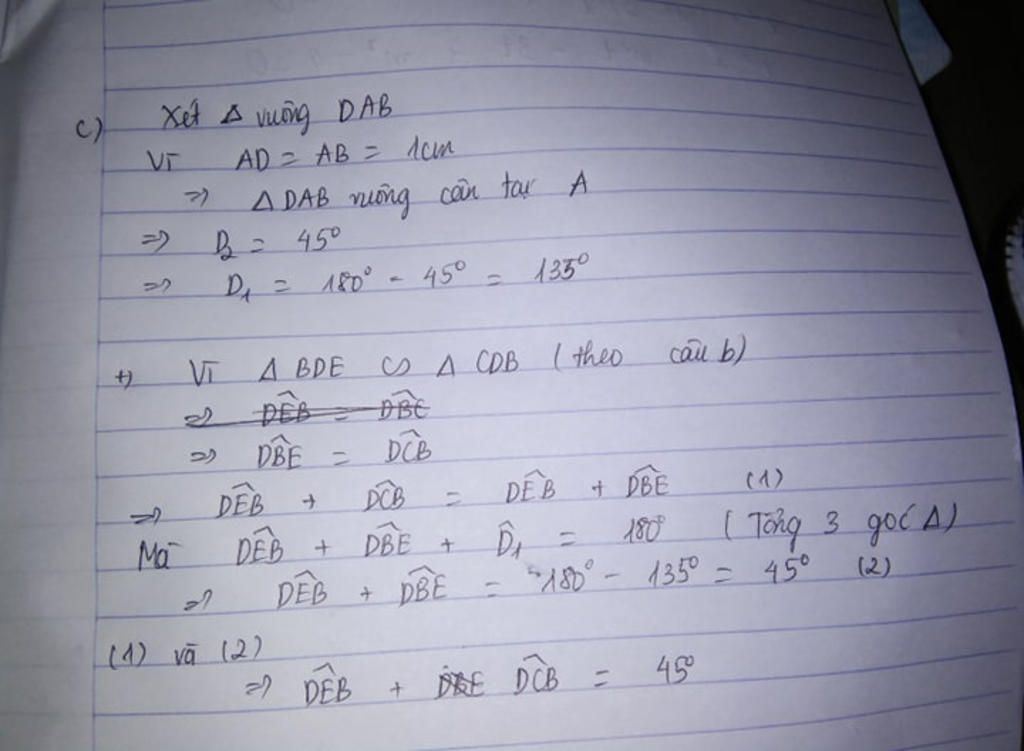 c) Xét Δ vuông DAB
Vì AD = AB = 1cm
=> Δ DAB vuông cân tại A
=> D₂ = 45°
=> D₁ = 180° - 45° = 135°
+) Vì Δ BDE ∽ Δ CDB (theo câu b)
=> DÊB = DB̂C
=> DB̂E = DĈB
=> DÊB + DĈB = DÊB + DB̂E (1)
Mà DÊB + DB̂E + D̂₁ = 180° (Tổng 3 góc Δ)
=> DÊB + DB̂E = 180° - 135° = 45° (2)
(1) và (2)
=> DÊB + DBE DĈB = 45°